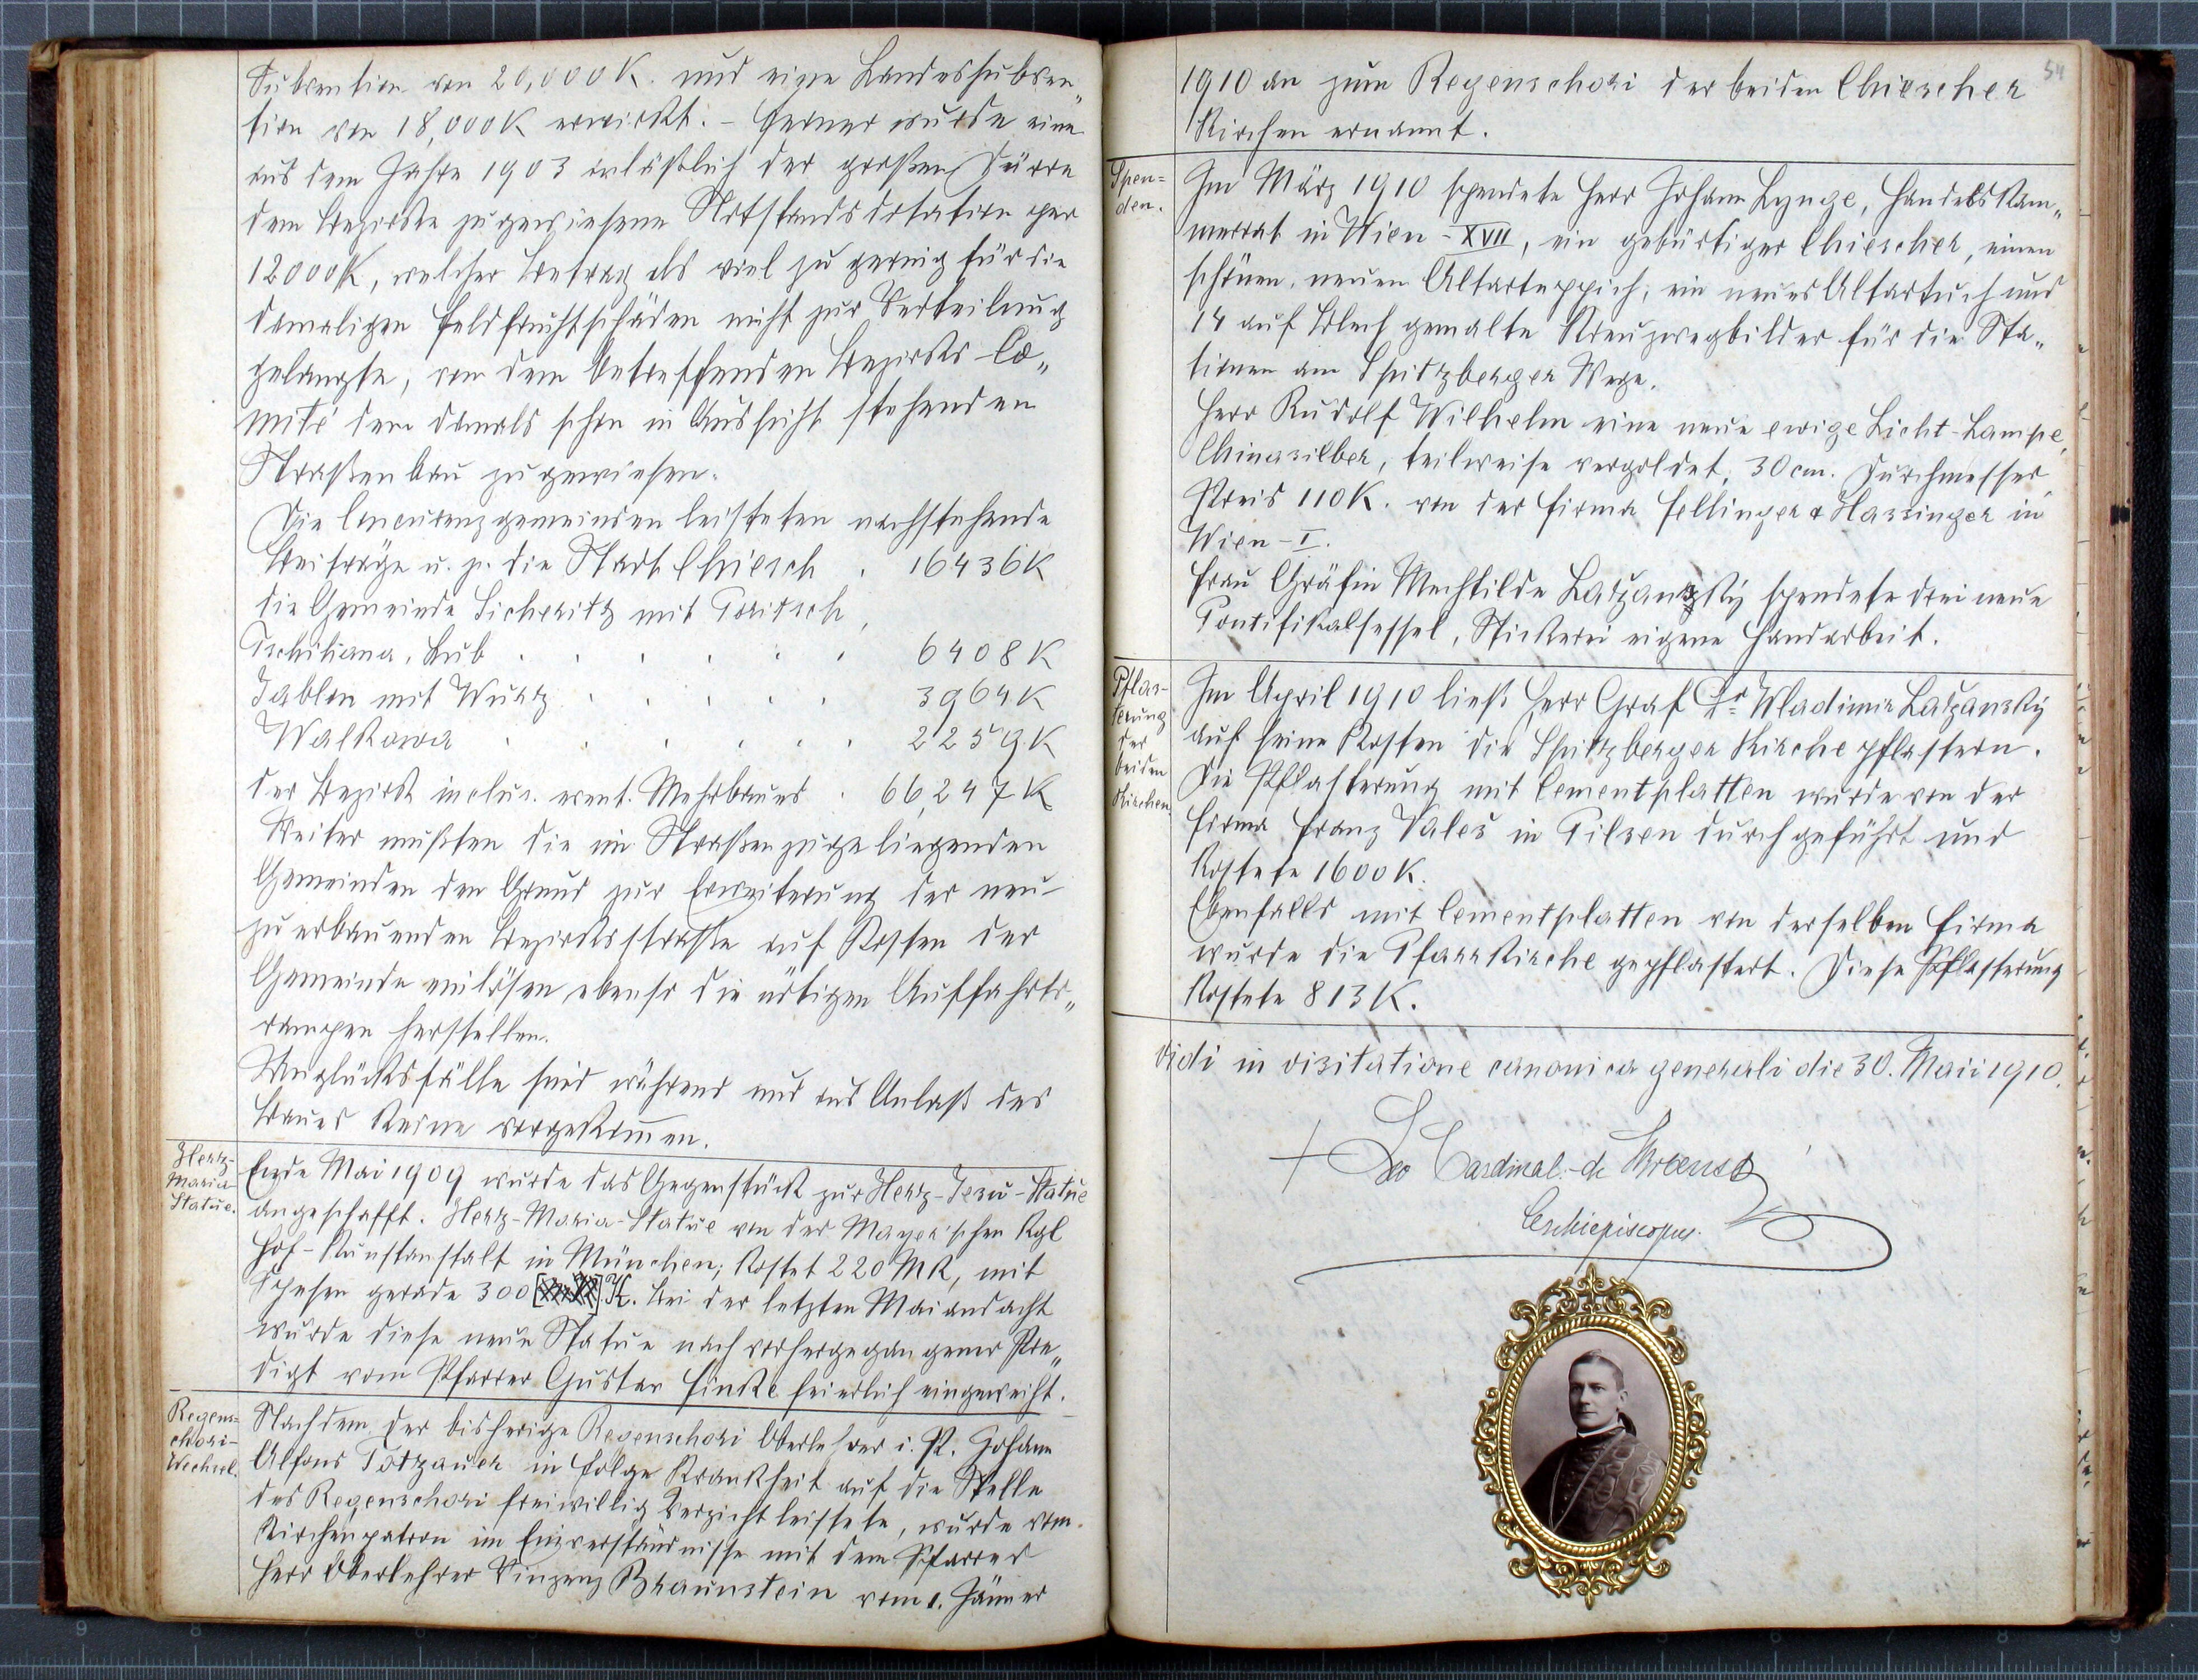 Subvention von 20,000 K. und eine Landessubven„
tion von 18,000 K erwirkt. – Ferner wurde eine
aus dem Jahre 1903 anläßlich der großen Dürre
dem Bezirke zugewiesene Notstandsdotation per
12000 K, welcher Betrag als viel zu gering für die
damaligen Feldfruchtschäden nicht zur Verteilung
gelangte, von dem betreffenden Bezirks-Co„
mité dem damals schon in Aussicht stehenden
Straßenbau zugewiesen.
Die Concurenzgemeinden leisteten nachstehende
Beiträge u. z. die Stadt Chiesch . 16436 K
die Gemeinde Sicheritz mit Poritsch,
Tschiliana, Kub . . . . . . 6408 K
Jablon mit Wurtz . . . . . 3964 K
Walkowa . . . . . . 2259 K
der Bezirk inclus. event. Mehrbaues . 66,247 K
Weiter mußten die im Straßenzuge liegenden
Gemeinden den Grund zur Erweiterung der neu-
zuerbauenden Bezirksstraße auf Kosten der
Gemeinde einlösen ebenso die nötigen Auffahrts„
rampen herstellen.
Unglücksfälle sind während und aus Anlaß des
Baues keine vorgekommen.
Hertz-
Maria-
Statue.
Ende Mai 1909 wurde das Gegenstück zur Hertz-Jesu-Statue
angeschafft. Hertz-Maria-Statue von der Mayer'schen Kgl
Hof-Kunstanstalt in München; kostet 220 Mk, mit
Spesen gerade 300 K. Bei der letzten Maiandacht
wurde diese neue Statue nach vorhergegangener Pre„
digt vom Pfarrer Gustav Finke feierlich eingeweiht.
Regens-
chori-
Wechsel.
Nachdem der bisherige Regenschori Oberlehrer i. P. Johann
Alfons Totzauer in folge Krankheit auf die Stelle
des Regenschori freiwillig Verzicht leistete, wurde vom
Kirchenpatron im Einverständnisse mit dem Pfarrer
Herr Oberlehrer Vinzenz Braunstein vom 1. Jänner
54
1910 an zum Regenschori der beiden Chiescher
Kirchen ernannt.
Spen=
den.
Im März 1910 spendete Herr Johann Lynge, Handelskam„
merrat in Wien-XVII, ein gebürtiger Chiescher, einen
schönen, neuen Altarteppich, ein neues Altartuch und
14 auf Blech gemalte Kreuzwegbilder für die Sta„
tionen am Spitzberger Wege.
Herr Rudolf Wilhelm eine neue ewige Licht-Lampe,
Chinasilber, teilweise vergoldet, 30 cm. Durchmesser,
Preis 110 K. von der Firma Fellinger & Hassinger in
Wien-I.
Frau Gräfin Mechtilde Lažanzký spendete drei neue
Pontifikalsessel, Stickerei eigene Handarbeit.
Pflas-
terung
der
beiden
Kirchen.
Im April 1910 ließ Herr Graf Dr Wladimir Lažanský
auf seine Kosten die Spitzberger Kirche pflastern.
Die Pflasterung mit Cementplatten wurde von der
Firma Franz Valeš in Pilsen durchgeführt und
kostete 1600 K.
Ebenfalls mit Cementplatten von derselben Firma
wurde die Pfarrkirche gepflastert. Diese Pflasterung
kostete 813 K.
Vidi in visitatione canonica generali die 30. Maii 1910.
+ Leo Cardinal-de Skrbensky
Archiepiscopus.